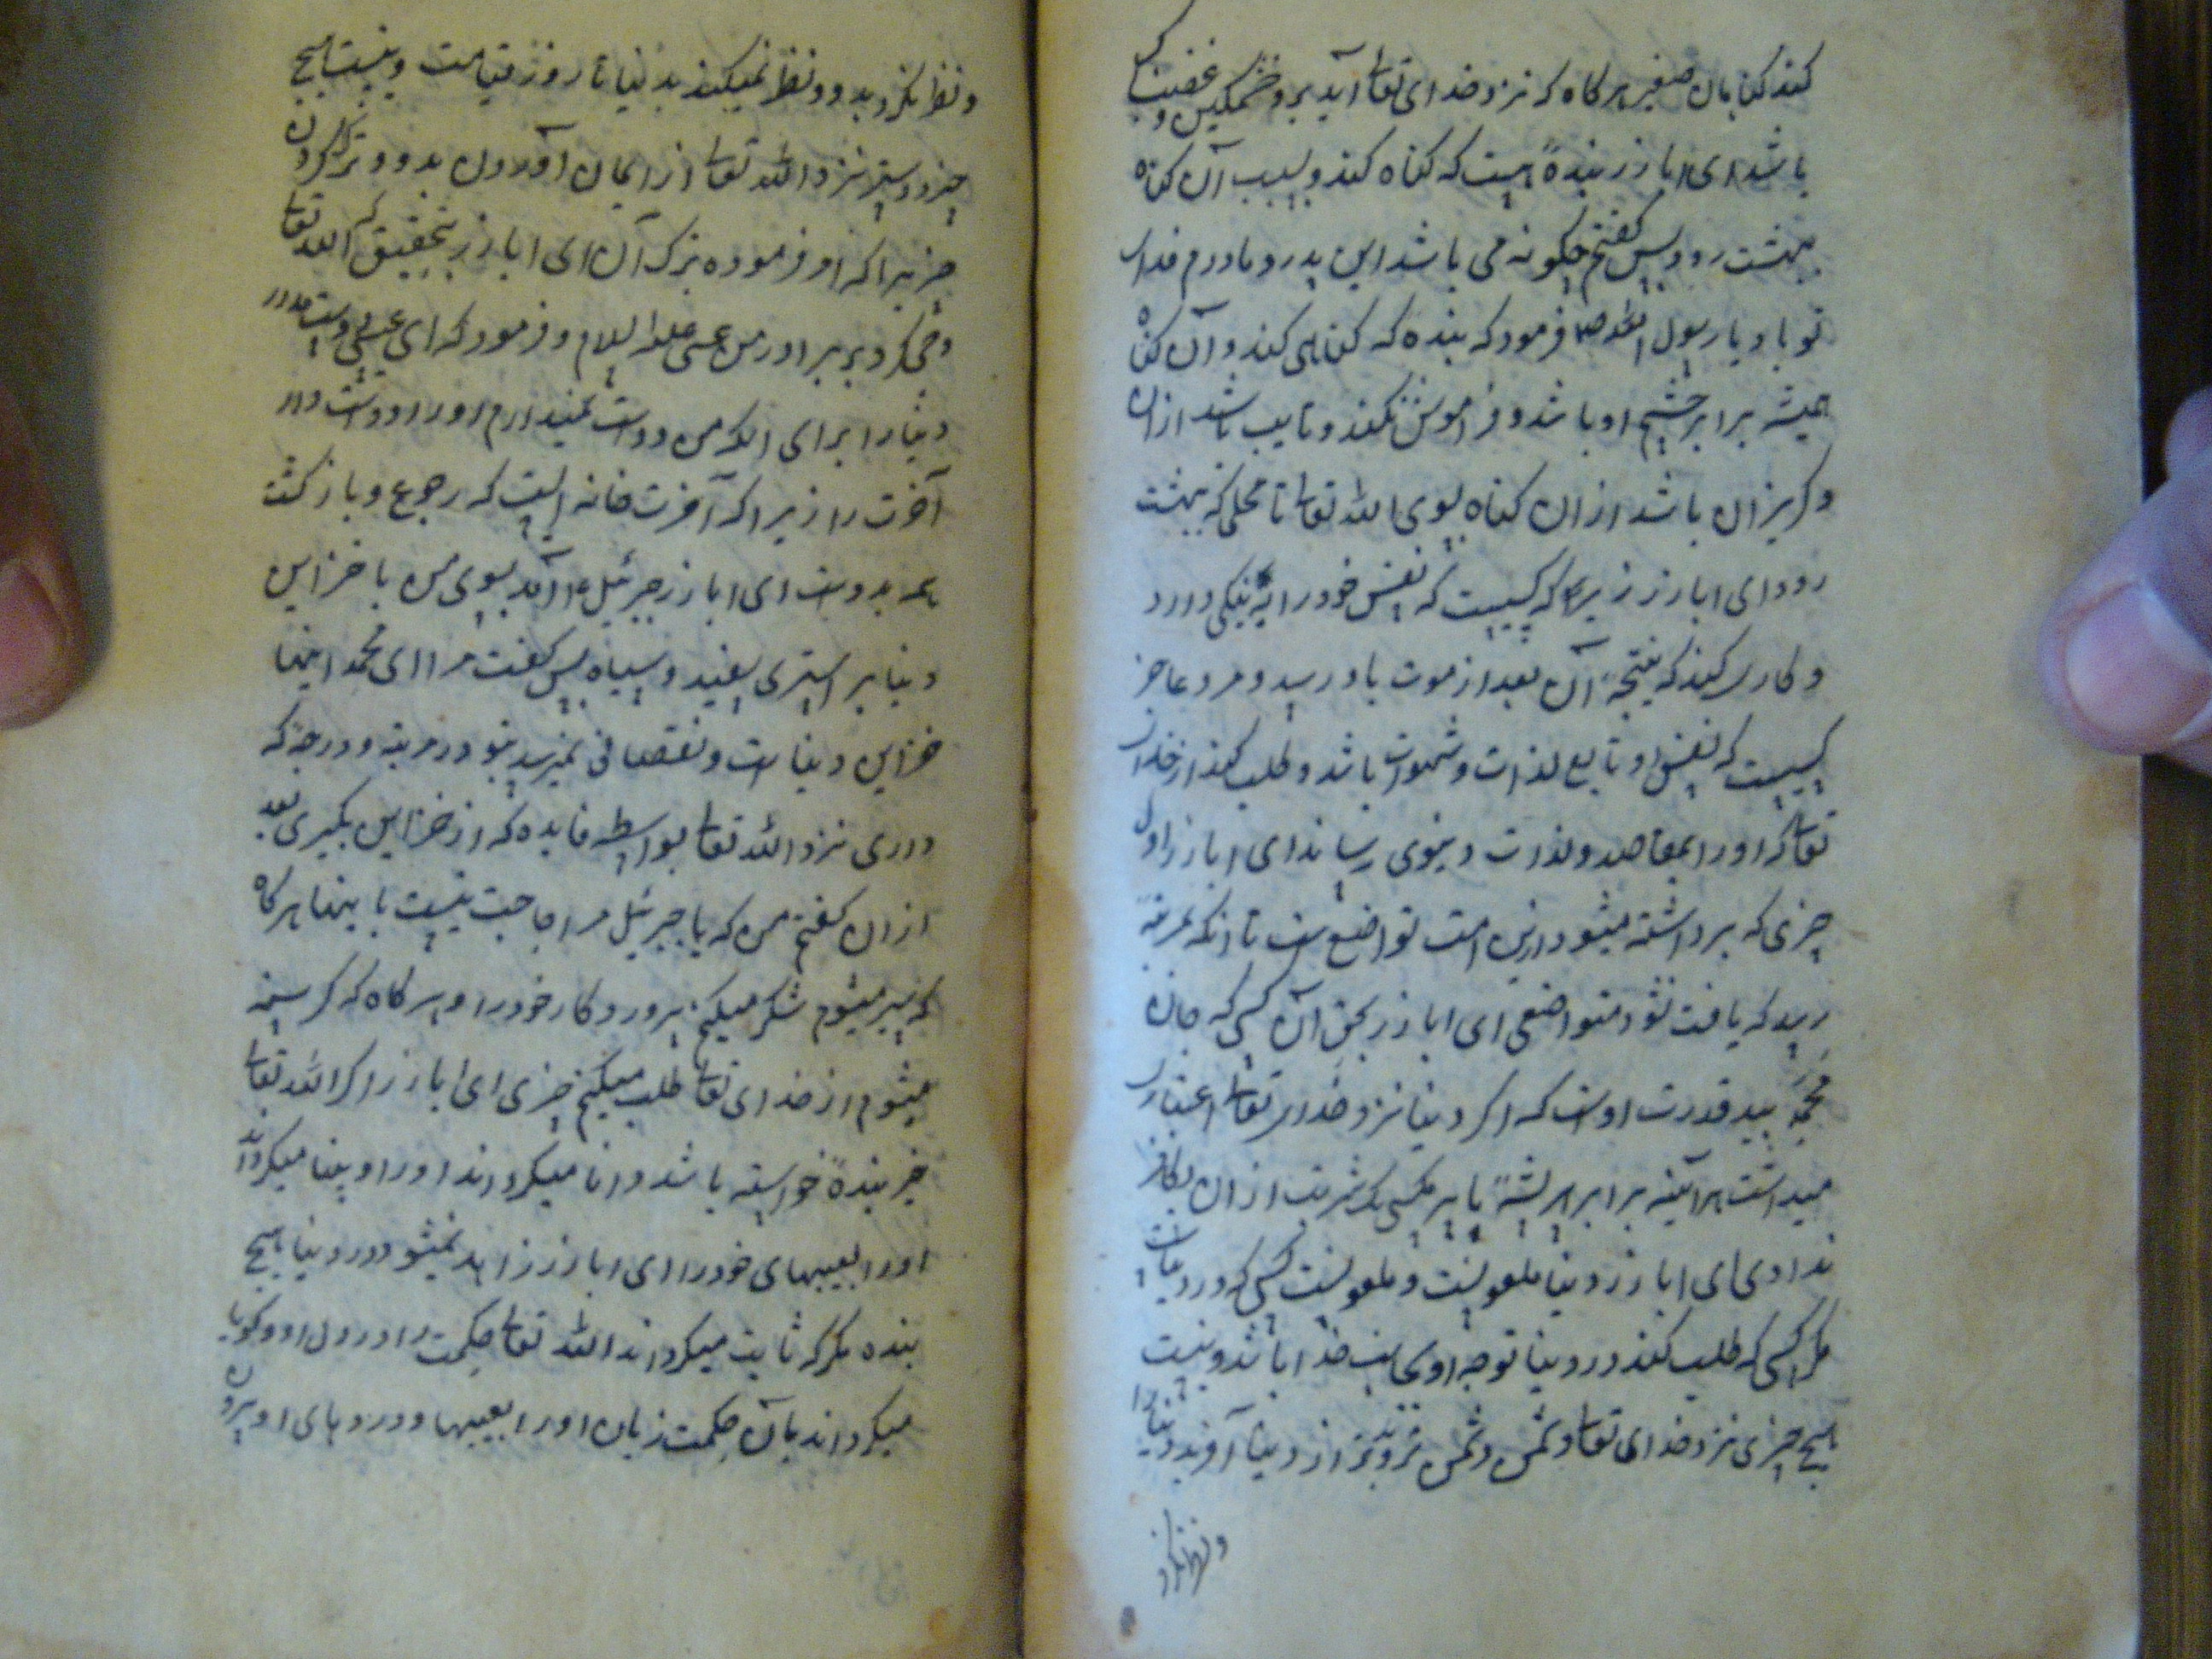 کند کناهان صغیر هرکاه که نزد خدای تعا آید برو خشمکین و غضبناک
باشد ای اباذر بندهٔ هست که کناه کند و بسبب آن کناه
ببهشت رود پس کفتم چکونه می باشد این پدر و مادرم فدای
تو باد یا رسول الله ص فرمود که بنده که کناهی کند و آن کناه
همیشه برابر چشم او باشد و فراموش نکند و تایب باشد ازان
و کریزان باشد ازان کناه بسوی الله تعا تا محلی که ببهشت
رود ای اباذر زیرک کسیست که نفس خود را به نیکی دارد
و کاری کند که نتیجهٔ آن بعد از موت باو رسد و مرد عاجز
کسیست که نفس او تابع لذات و شهوات باشد و طلب کند از خدای
تعا که او را بمقاصد و لذات دنیوی رساند ای اباذر اول
چیزی که برداشته میشود ازین امت تواضع است تا آنکه بمرتبه
رسد که یافت نشود متواضعی ای اباذر بحق آن کسی که جان
محمد بید قدرت اوست که اکر دنیا نزد خدای تعا اعتبار
میداشت هراینه برابر پر پشهٔ یا پر مکسی یک شربت ازان بکافر
ندادی ای اباذر دنیا ملعونست و ملعونست کسی که در دنیاست
مکر کسی که طلب کند در دنیا توجه او بجانب خدا باشد و نیست
هیچ چیزی نزد خدای تعا دشمن تر از دنیا آفرید دنیا را
و نظر نکرد
و نظر نکرد بدو و نظر نمیکند بدنیا تا روز قیامت و نیست هیچ
چیز دوستتر نزد الله تعا از ایمان آوردن بدو و ترک کردن
چیزیرا که امر فرموده بترک آن ای اباذر بتحقیق که الله تعا
وحی کرد ببرادر من عیسی علیه السلام و فرمود که ای عیسی دوست مدار
دنیا را برای انکه من دوست نمیدارم او را و دوست دار
آخرت را زیرا که آخرت خانه ایست که رجوع و بازکشت
همه بدوست ای اباذر جبرئیل ع آمد بسوی من با خزاین
دنیا بر استری سفید و سیاه پس کفت مرا ای محمد اینها
خزاین دنیاست و نقصانی نمیرسد بتو در مرتبه و درجه که
داری نزد الله تعا بواسطه فایده که از خزاین بکیری بعد
ازان کفتم من که یا جبرئیل مرا حاجت نیست باینها هرکاه
که سیر میشوم شکر میکنم پروردکار خود را و هرکاه که کرسنه
میشوم از خدای تعا طلب میکنم چیزی ای اباذر اکر الله تعا
خیر بندهٔ خواسته باشد دانا میکرداند او را و بینا میکرداند
او را بعیبهای خود را ای اباذر زاهد نمیشود در دنیا هیچ
بنده مکر که ثابت میکرداند الله تعا حکمت را در دل او و کویا
میکرداند بآن حکمت زبان او را بعیبها و دردهای او بیرون